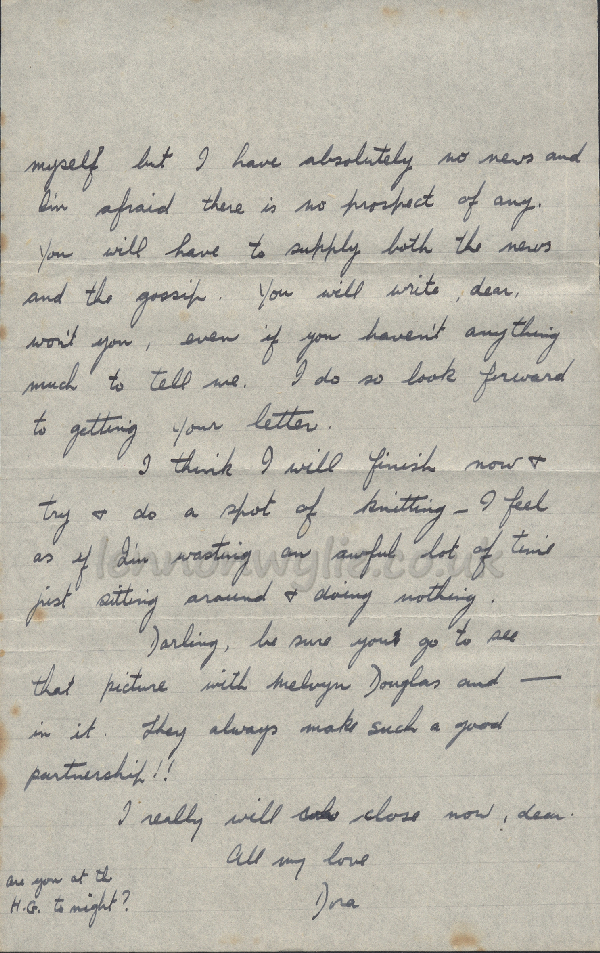 myself but I have absolutely no news and
I'm afraid there is no prospect of any.
You will have to supply both the news
and the gossip. You will write, dear,
won't you, even if you haven't anything
much to tell me. I do so look forward
to getting your letter.
I think I will finish now &
try & do a spot of knitting - I feel
as if I'm wasting an awful lot of time
just sitting around & doing nothing.
Darling, be sure you go to see
that picture with Melvyn Douglas and —
in it. They always make such a good
partnership!!
I really will close now, dear.
All my love
Dora
are you at the
H.G. to night?
lennonwylie.co.uk